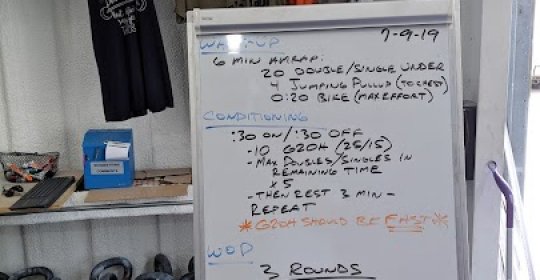 WARM-UP
7-9-19
6 MIN AMRAP:
20 DOUBLE/SINGLE UNDER
4 JUMPING PULLUP (TO CHEST)
0:20 BIKE (MAX EFFORT)
CONDITIONING
:30 ON/:30 OFF
-10 G2OH (25/15)
-MAX DOUBLES/SINGLES IN
REMAINING TIME
x 5
-THEN REST 3 MIN-
REPEAT
*G2OH SHOULD BE FAST*
WOD
3 ROUNDS